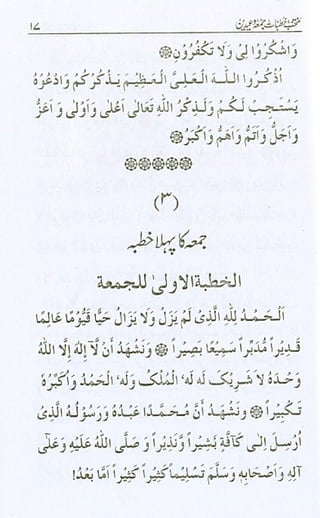 منتخب خطبات جمعہ و عیدین ۱۷
وَاشْكُرُوا لِىْ وَلَا تَكْفُرُوْنِ
اُذْكُرُوا اللّٰهَ الْعَلِىَّ الْعَظِيْمَ يَذْكُرْكُمْ وَادْعُوْهُ
يَسْتَجِبْ لَكُمْ وَلَذِكْرُ اللّٰهِ تَعَالٰى اَعْلٰى وَاَوْلٰى وَ اَعَزُّ
وَاَجَلُّ وَاَتَمُّ وَاَهَمُّ وَاَكْبَرُ
(۳)
جمعہ کا پہلا خطبہ
الخطبة الاولىٰ للجمعة
اَلْحَمْدُ لِلّٰهِ الَّذِىْ لَمْ يَزَلْ وَلَا يَزَالُ حَيًّا قَيُّوْمًا عَالِمًا
قَدِيْرًا مُدَبِّرًا سَمِيْعًا بَصِيْرًا وَنَشْهَدُ اَنْ لَّآ اِلٰهَ اِلَّا اللّٰهُ
وَحْدَهُ لَا شَرِيْكَ لَهُ لَهُ الْمُلْكُ وَلَهُ الْحَمْدُ وَاُكَبِّرُهُ
تَكْبِيْرًا وَنَشْهَدُ اَنَّ مُحَمَّدًا عَبْدُهُ وَرَسُوْلُهُ الَّذِىْ
اُرْسِلَ اِلٰى كَآفَّةٍ بَشِيْرًا وَّنَذِيْرًا وَ صَلَّى اللّٰهُ عَلَيْهِ وَعَلٰى
آلِهِ وَاَصْحَابِهِ وَسَلَّمَ تَسْلِيْمًا كَثِيْرًا كَثِيْرًا اَمَّا بَعْدُ!